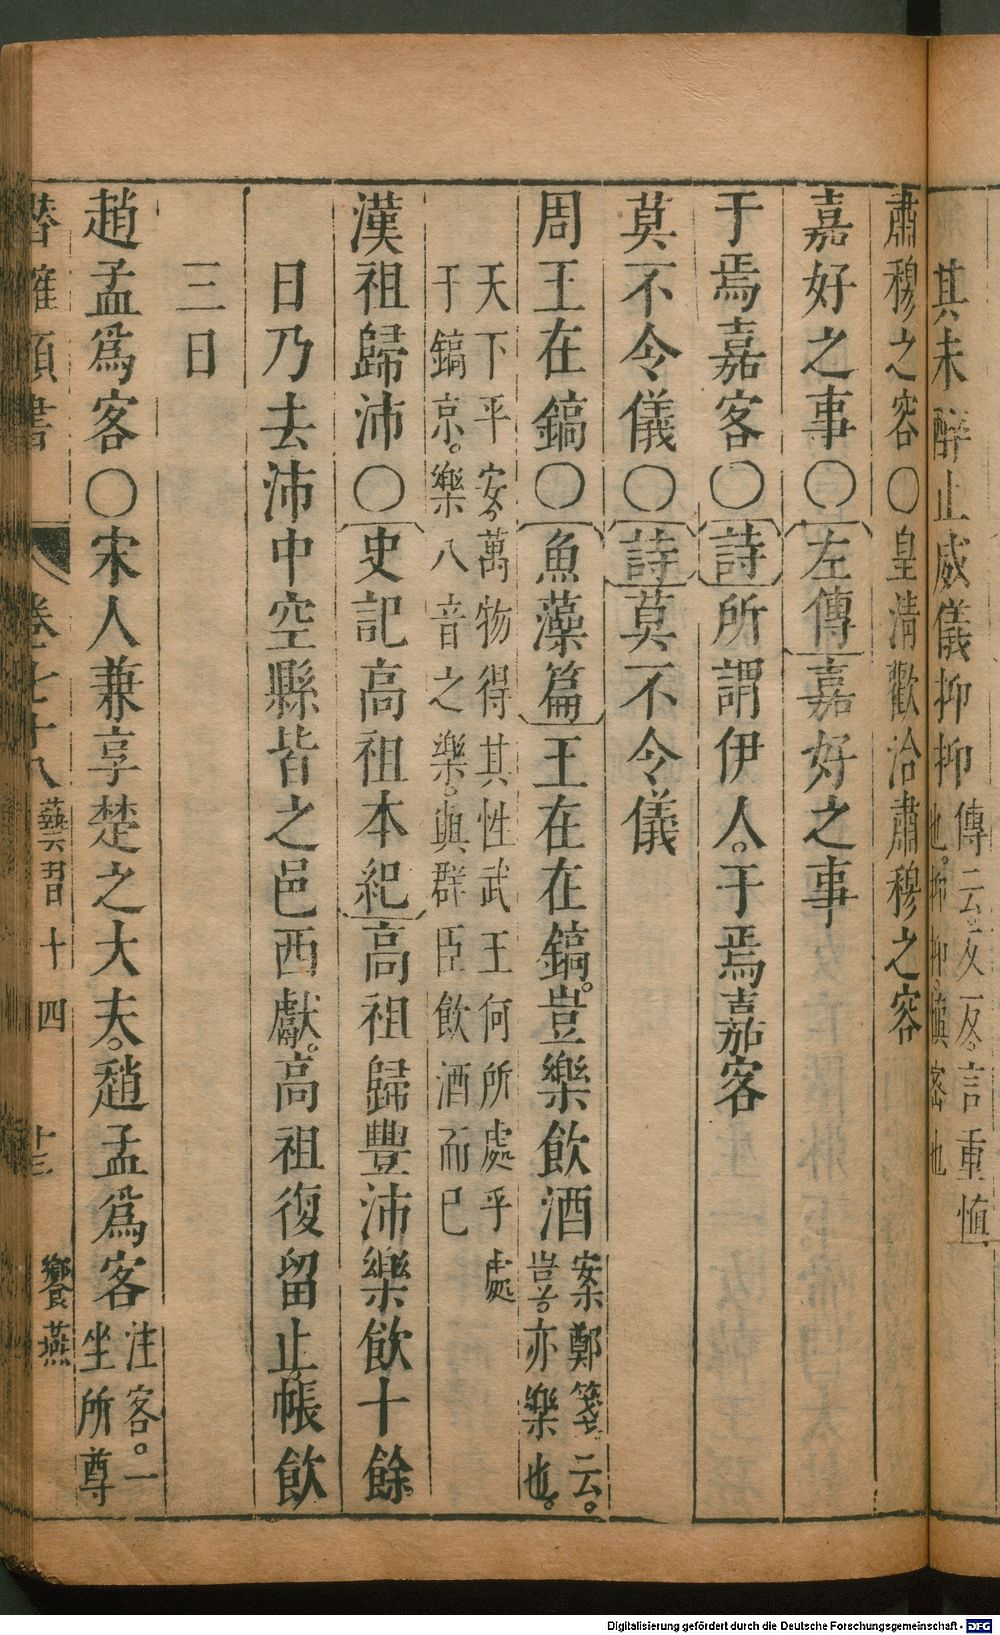 其未醉止威儀抑抑傳云反反言重慎
也抑抑慎密也
肅穆之容〇皇清歡洽肅穆之容
嘉好之事〇左傳嘉好之事
于焉嘉客〇詩所謂伊人。于焉嘉客
莫不令儀〇詩莫不令儀
周王在鎬〇魚藻篇王在在鎬。豈樂飲酒案鄭箋云。
豈亦樂也。
天下平安。萬物得其性武王何所處乎處
于鎬京。樂八音之樂。與群臣飲酒而已
漢祖歸沛〇史記高祖本紀高祖歸豐沛樂飲十餘
日乃去沛中空縣皆之邑西獻。高祖復留止。帳飲
三日
趙孟爲客〇宋人兼享楚之大夫。趙孟爲客注客。一
坐所尊
卷七十八 藝習十四 十三 饗燕
Digitalisierung gefördert durch die Deutsche Forschungsgemeinschaft - DFG